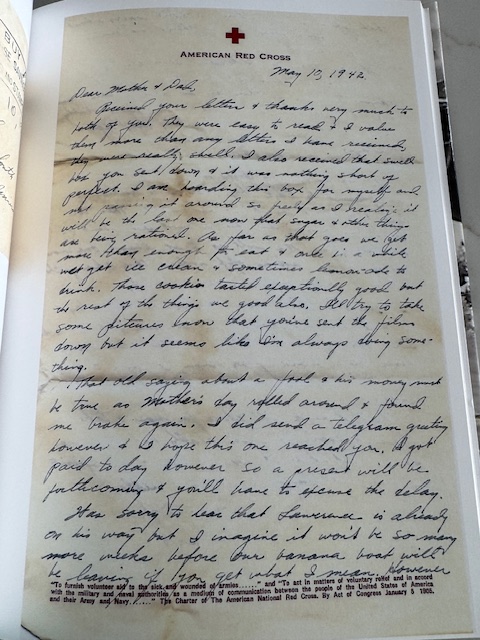 AMERICAN RED CROSS
May 13, 1942.
Dear Mother & Dad,
Received your letters & thanks very much to
both of you. They were easy to read & I value
them more than any letters I have received,
they were really swell. I also received that swell
box you sent down & it was nothing short of
perfect. I am hoarding this box for myself and
not passing it around so freely as I realize it
will be the last one now that sugar & other things
are being rationed. As far as that goes we get
more than enough to eat & once in a while
we get ice cream & sometimes lemon-ade to
drink. Those cookies tasted exceptionally good but
the rest of the things were good also. I'll try to take
some pictures now that you've sent the films
down but it seems like I'm always doing some-
thing.
That old saying about a fool & his money must
be true as Mother's day rolled around & found
me broke again. I did send a telegram greeting
however & I hope this one reached you. I got
paid to day however so a present will be
forthcoming & you'll have to excuse the delay.
Was sorry to hear that Lawrence is already
on his way but I imagine it won't be so many
more weeks before our banana boat will
be leaving if you get what I mean. However
"To furnish volunteer aid to the sick and wounded of armies......" and "To act in matters of voluntary relief and in accord
with the military and naval authorities as a medium of communication between the people of the United States of America
and their Army and Navy. ......" The Charter of The American National Red Cross. By Act of Congress January 5 1905.